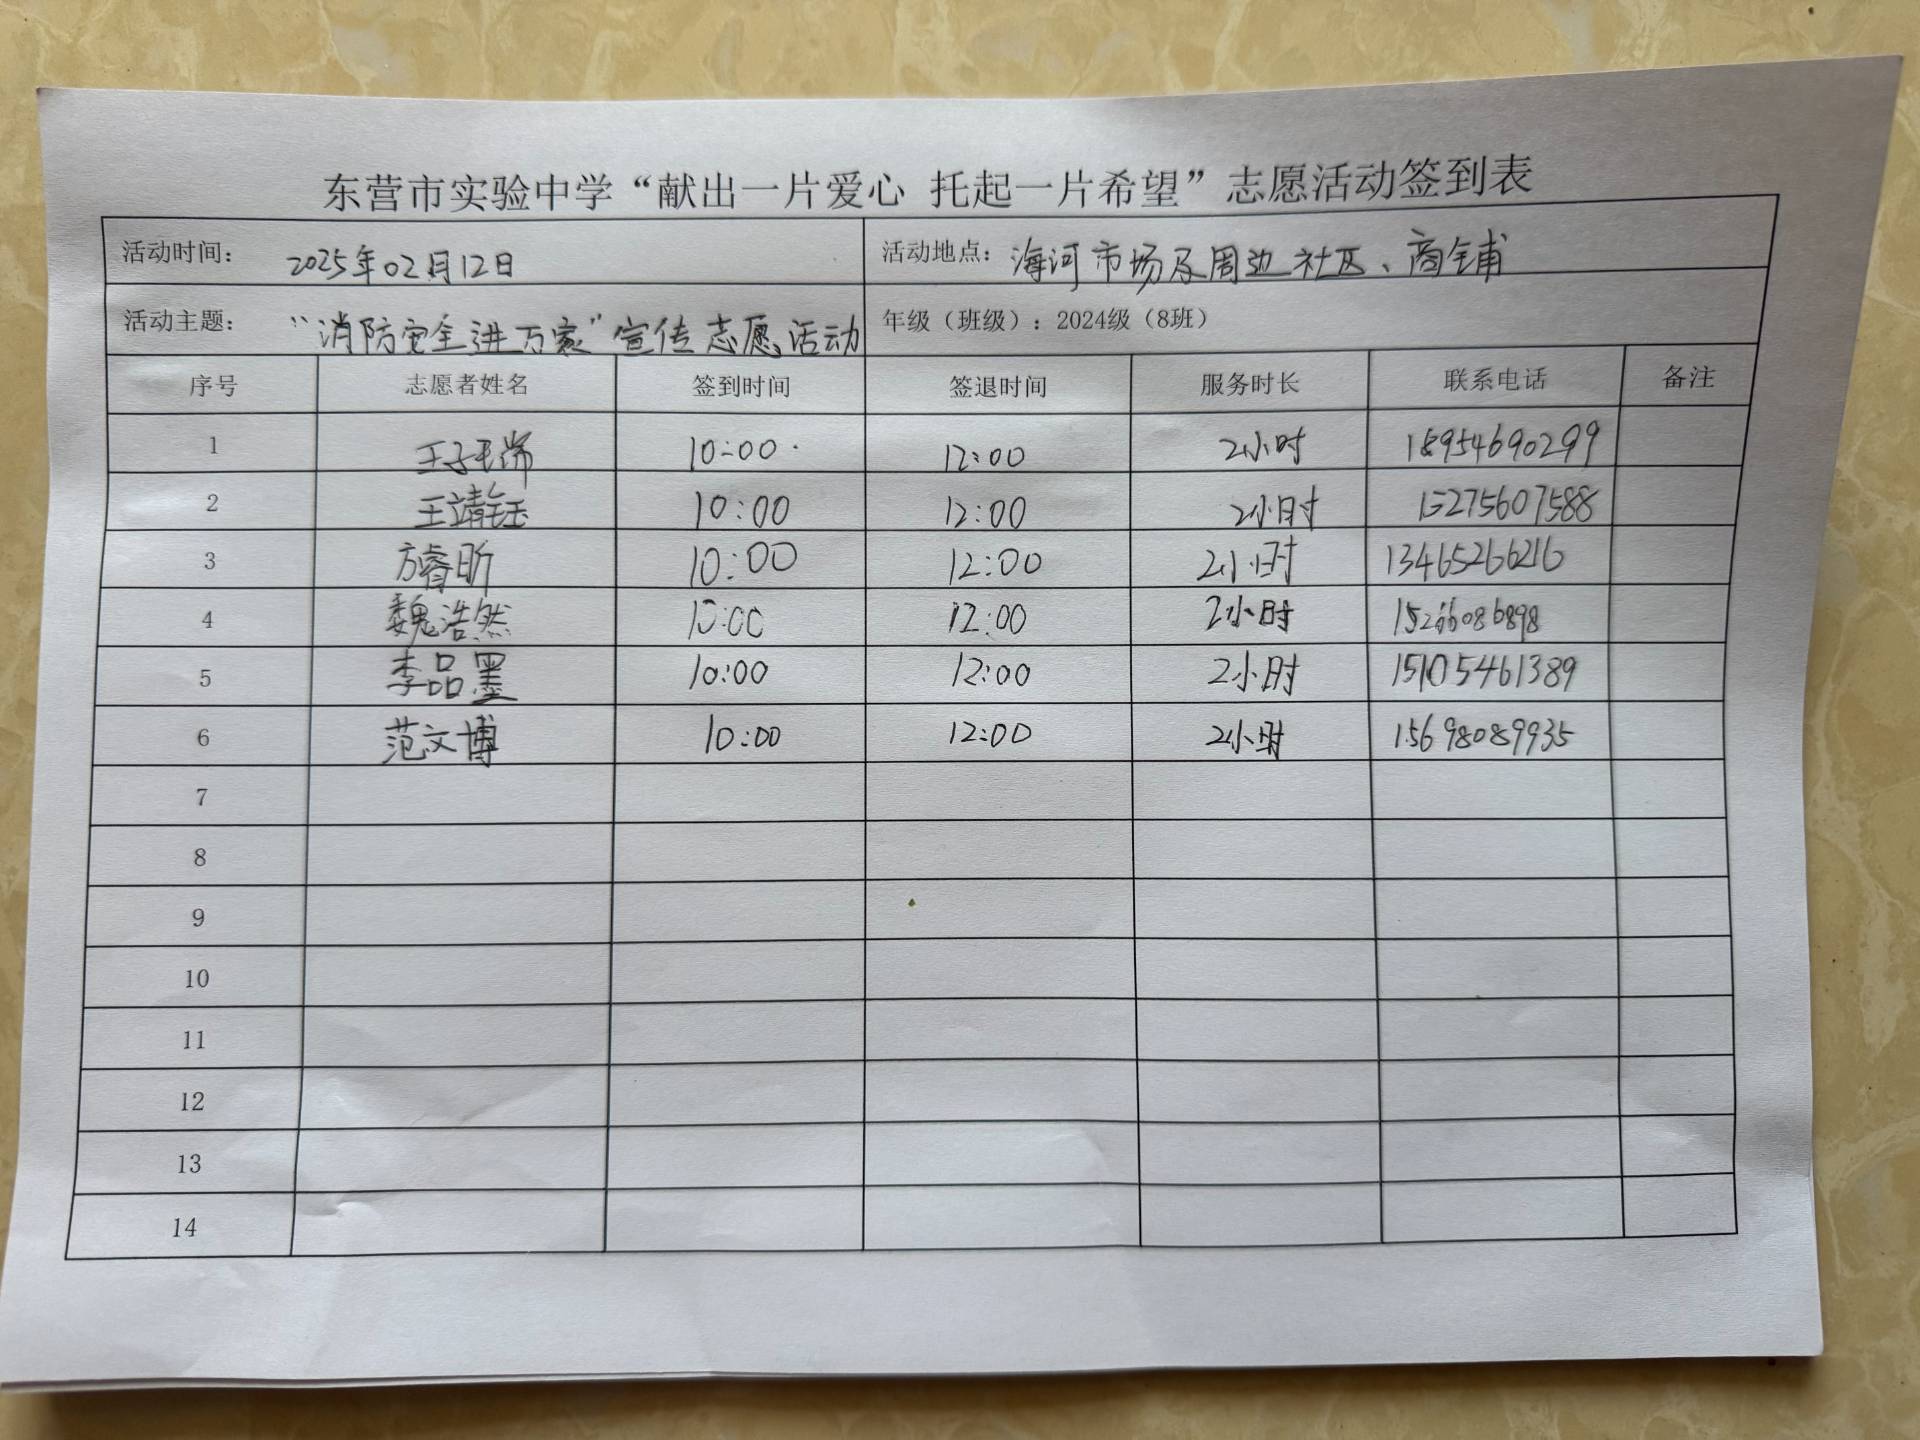 东营市实验中学“献出一片爱心 托起一片希望”志愿活动签到表
活动时间： 2025年02月12日 活动地点：海河市场及周边社区、商铺
活动主题： “消防安全进万家”宣传志愿活动 年级（班级）：2024级（8班）
序号 志愿者姓名 签到时间 签退时间 服务时长 联系电话 备注
1 王子毛端 10:00 12:00 2小时 18954690299
2 王靖钰 10:00 12:00 2小时 15275607588
3 方睿昕 10:00 12:00 2小时 13465266216
4 魏浩然 10:00 12:00 2小时 15266086898
5 李品墨 10:00 12:00 2小时 15105461389
6 范文博 10:00 12:00 2小时 15698089935
7
8
9
10
11
12
13
14